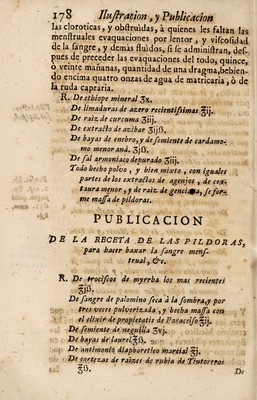 178 Ilustracion, y Publicacion
las cloroticas, y obstruidas, à quienes les faltan las
menstruales evaquaciones por lentor, y viscosidad
de la sangre, y demás fluidos, si se administran, des-
pues de preceder las evaquaciones del todo, quince,
ò veinte mañanas, quantidad de una dragma, bebien-
do encima quatro onzas de agua de matricaria, ò de
la ruda capraria.
R. De ethiope mineral ʒx.
De limaduras de azero recentissimas ℥ij.
De raiz de curcuma ʒiij.
De extracto de azibar ℥ijß.
De bayas de enebro, y de semiente de cardamo-
mo menor aná. ℥ß.
De sal armoniaco depurado ʒiij.
Todo hecho polvo, y bien mixto, con iguales
partes de los extractos de agenjos, de cen-
taura menor, y de raiz de genciana, se for-
me massa de pildoras.
PUBLICACION
DE LA RECETA DE LAS PILDORAS,
para hacer baxar la sangre mens-
trual, &c.
R. De trociscos de myrrha los mas recientes
℥jß.
De sangre de palomino seca à la sombra, y por
tres veces pulverizada, y hecha massa con
el elixir de proprietatis de Paracelso ℥ij.
De semiente de neguilla ʒvj.
De bayas de laurel ℥ß.
De antimonio diaphoretico marcial ℥j.
De cortezas de raizes de rubia de Tintoreros
℥ß.
De